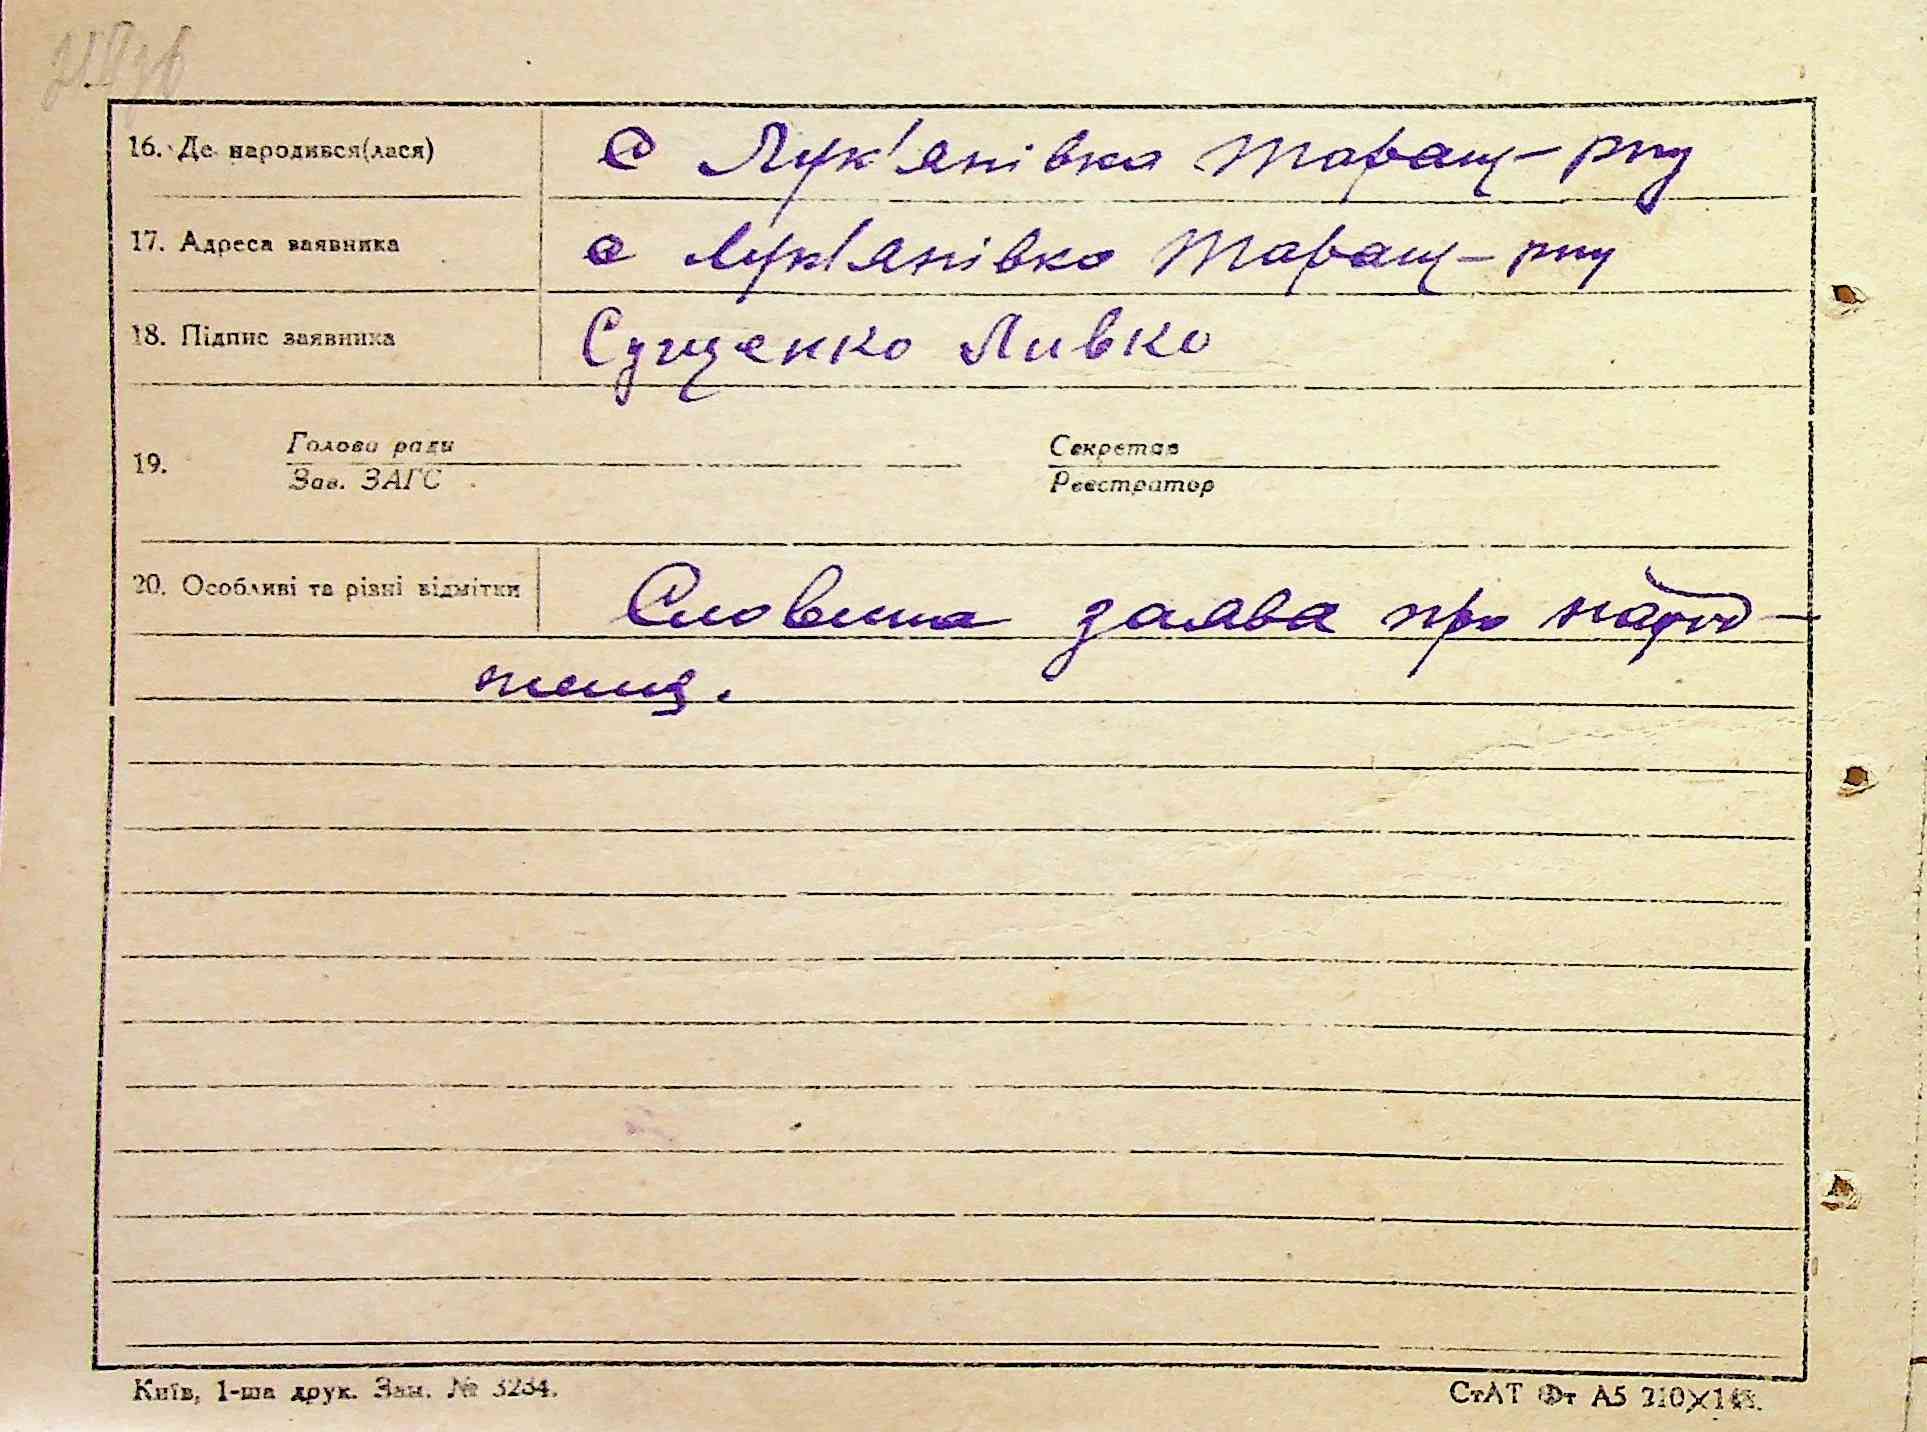 16. Де народився(лася) с Лук'янівка Таращ- р-ну
17. Адреса заявника с Лук'янівка Таращ- р-ну
18. Підпис заявника Сущенко Ливко
19. Голова ради Секретар
Зав. ЗАГС Реєстратор
20. Особливі та різні відмітки Словесна заява про народ-
ження.
Київ, 1-ша друк. Зам. № 3234. СтАТ Фт А5 210×148.